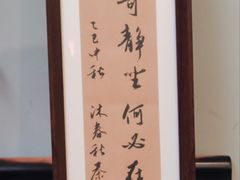 静坐何必在
乙巳中秋
沐春秋